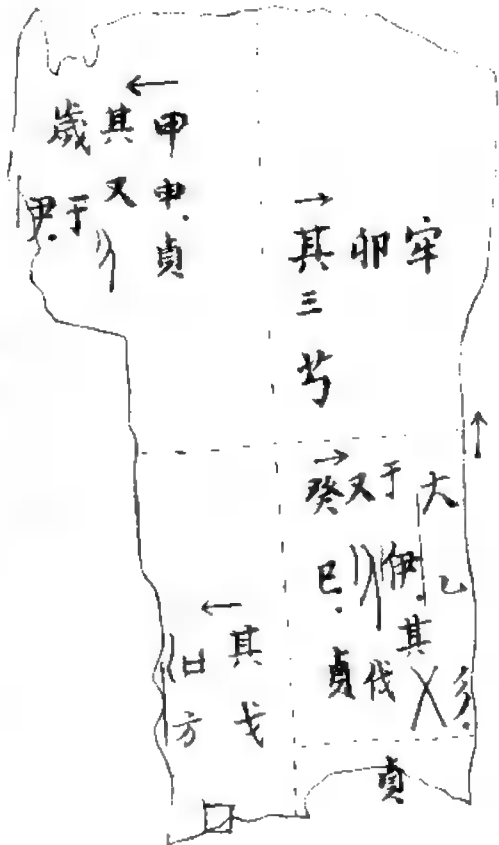 甲申.貞
其又
歲于
伊.
其三芍
卯
牢
癸巳.貞
又伐
于伊.其
乂
大乙彡.
其戈
方
貞